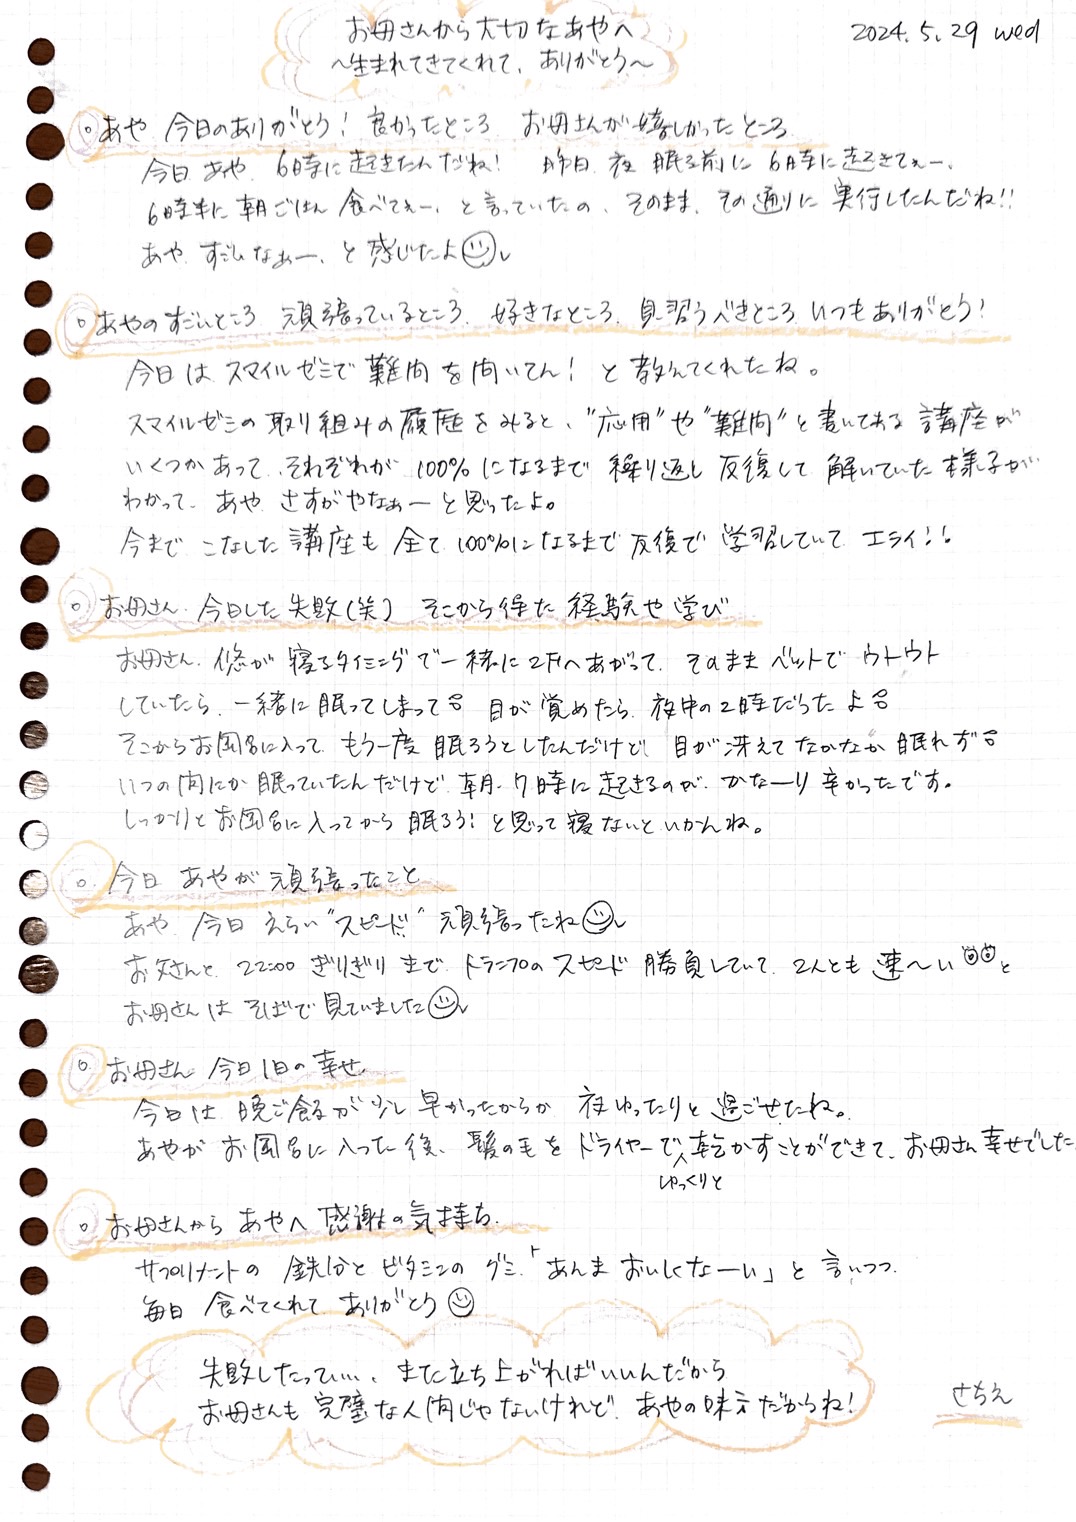 お母さんから大切なあやへ
2024.5.29 wed
~生まれてきてくれて、ありがとう~
あや 今日のありがとう! 良かったところ お母さんが嬉しかったところ
今日 あや 6時に起きたんだね! 昨日 夜 眠る前に 6時に起きてぇー、
6時半に朝ごはん食べてぇー、と言っていたの、そのまま、その通りに実行したんだね!!
あや すごいなぁー、と感じたよ
あやのすごいところ 頑張っているところ、好きなところ、見習うべきところ いつもありがとう!
今日は スマイルゼミで難問を解いてん! と教えてくれたね。
スマイルゼミの取り組みの履歴をみると、"応用"や"難問"と書いてある講座が
いくつかあって、それぞれが 100%になるまで 繰り返し 反復して 解いていた様子が
わかって、あや さすがやなぁーと思ったよ。
今まで こなした講座も 全て 100%になるまで反復で 学習していて エライ!!
お母さん 今日した失敗(笑) そこから得た経験や学び
お母さん、悠が寝るタイミングで一緒に2Fへあがって、そのままベットでウトウト
していたら、一緒に眠ってしまって 目が覚めたら 夜中の2時だったよ
そこからお風呂に入って もう一度眠ろうとしたんだけど 目が冴えてなかなか眠れず
いつの間にか眠っていたんだけど 朝 7時に起きるのが かなーり 辛かったです。
しっかりとお風呂に入ってから 眠ろう! と思って寝ないといかんね。
今日 あやが頑張ったこと
あや 今日 えらい"スピード" 頑張ったね
お父さんと 22:00 ぎりぎりまで トランプのスピード 勝負していて 2人とも 速~い と
お母さんは そばで見ていました
お母さん 今日1日の幸せ
今日は 晩ご飯が少し早かったからか 夜ゆったりと過ごせたね。
あやが お風呂に入った後、髪の毛をドライヤーでゆっくりと乾かすことができて、お母さん幸せでした
お母さんから あやへ 感謝の気持ち
サプリメントの 鉄分とビタミンの グミ、「あんま おいしくなーい」と言いつつ
毎日 食べてくれて ありがとう
失敗したってい…、また立ち上がればいいんだから
お母さんも完璧な人間じゃないけれど、あやの味方だからね!
さちえ